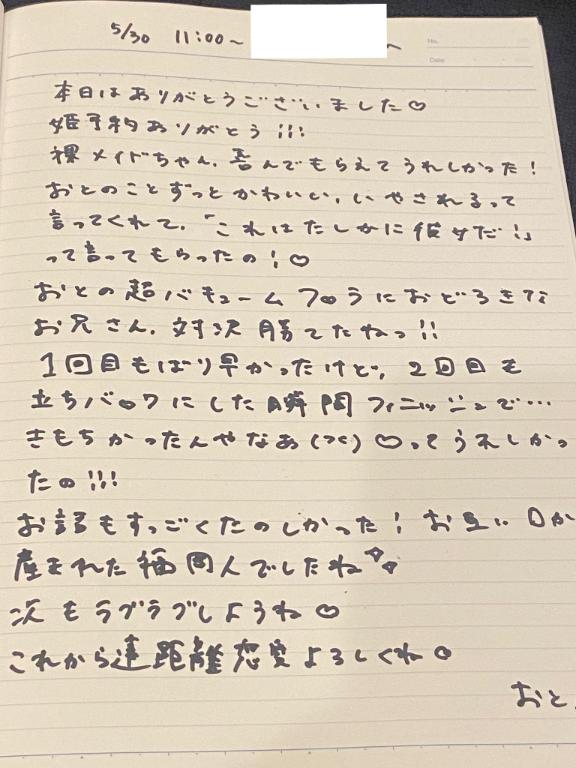 5/30 11:00~
No.
Date
本日はありがとうございました♡
姫予約ありがとう!!!
裸メイドちゃん、喜んでもらえてうれしかった!
おとのことずっとかわいい、いやされるって
言ってくれて、「これはたしかに彼女だ!」
って言ってもらったの!♡
おとの超バキュームフェラにおどろきな
お兄さん、対決勝てたねっ!!
1回目もばり早かったけど、2回目も
立ちバックにした瞬間フィニッシュで…
きもちかったんやなあ(つく)♡ってうれしかっ
たの!!!
お話もすっごくたのしかった! お互い口か
産まれた福岡人でしたね
次もラブラブしようね♡
これから遠距離恋愛よろしくね♡
おと